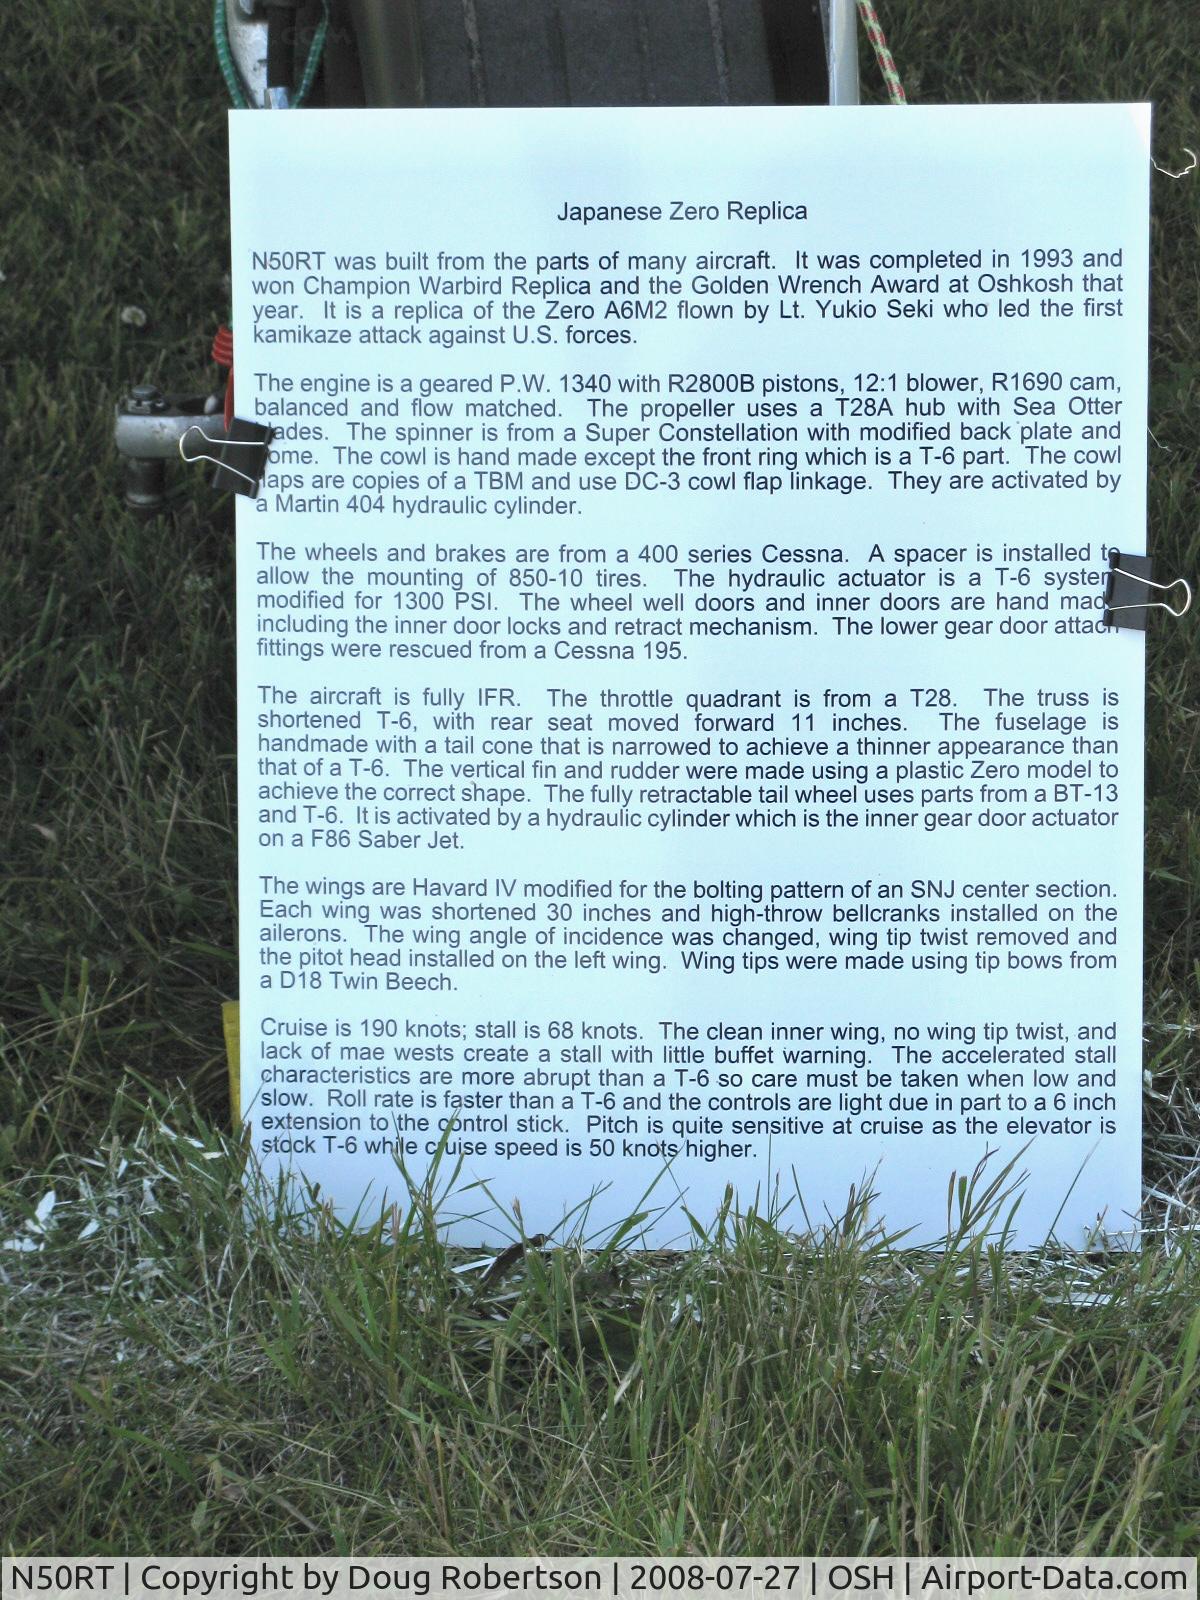 Japanese Zero Replica
N50RT was built from the parts of many aircraft. It was completed in 1993 and
won Champion Warbird Replica and the Golden Wrench Award at Oshkosh that
year. It is a replica of the Zero A6M2 flown by Lt. Yukio Seki who led the first
kamikaze attack against U.S. forces.
The engine is a geared P.W. 1340 with R2800B pistons, 12:1 blower, R1690 cam,
balanced and flow matched. The propeller uses a T28A hub with Sea Otter
blades. The spinner is from a Super Constellation with modified back plate and
dome. The cowl is hand made except the front ring which is a T-6 part. The cowl
flaps are copies of a TBM and use DC-3 cowl flap linkage. They are activated by
a Martin 404 hydraulic cylinder.
The wheels and brakes are from a 400 series Cessna. A spacer is installed to
allow the mounting of 850-10 tires. The hydraulic actuator is a T-6 system
modified for 1300 PSI. The wheel well doors and inner doors are hand made
including the inner door locks and retract mechanism. The lower gear door attach
fittings were rescued from a Cessna 195.
The aircraft is fully IFR. The throttle quadrant is from a T28. The truss is
shortened T-6, with rear seat moved forward 11 inches. The fuselage is
handmade with a tail cone that is narrowed to achieve a thinner appearance than
that of a T-6. The vertical fin and rudder were made using a plastic Zero model to
achieve the correct shape. The fully retractable tail wheel uses parts from a BT-13
and T-6. It is activated by a hydraulic cylinder which is the inner gear door actuator
on a F86 Saber Jet.
The wings are Havard IV modified for the bolting pattern of an SNJ center section.
Each wing was shortened 30 inches and high-throw bellcranks installed on the
ailerons. The wing angle of incidence was changed, wing tip twist removed and
the pitot head installed on the left wing. Wing tips were made using tip bows from
a D18 Twin Beech.
Cruise is 190 knots; stall is 68 knots. The clean inner wing, no wing tip twist, and
lack of mae wests create a stall with little buffet warning. The accelerated stall
characteristics are more abrupt than a T-6 so care must be taken when low and
slow. Roll rate is faster than a T-6 and the controls are light due in part to a 6 inch
extension to the control stick. Pitch is quite sensitive at cruise as the elevator is
stock T-6 while cruise speed is 50 knots higher.
N50RT | Copyright by Doug Robertson | 2008-07-27 | OSH | Airport-Data.com